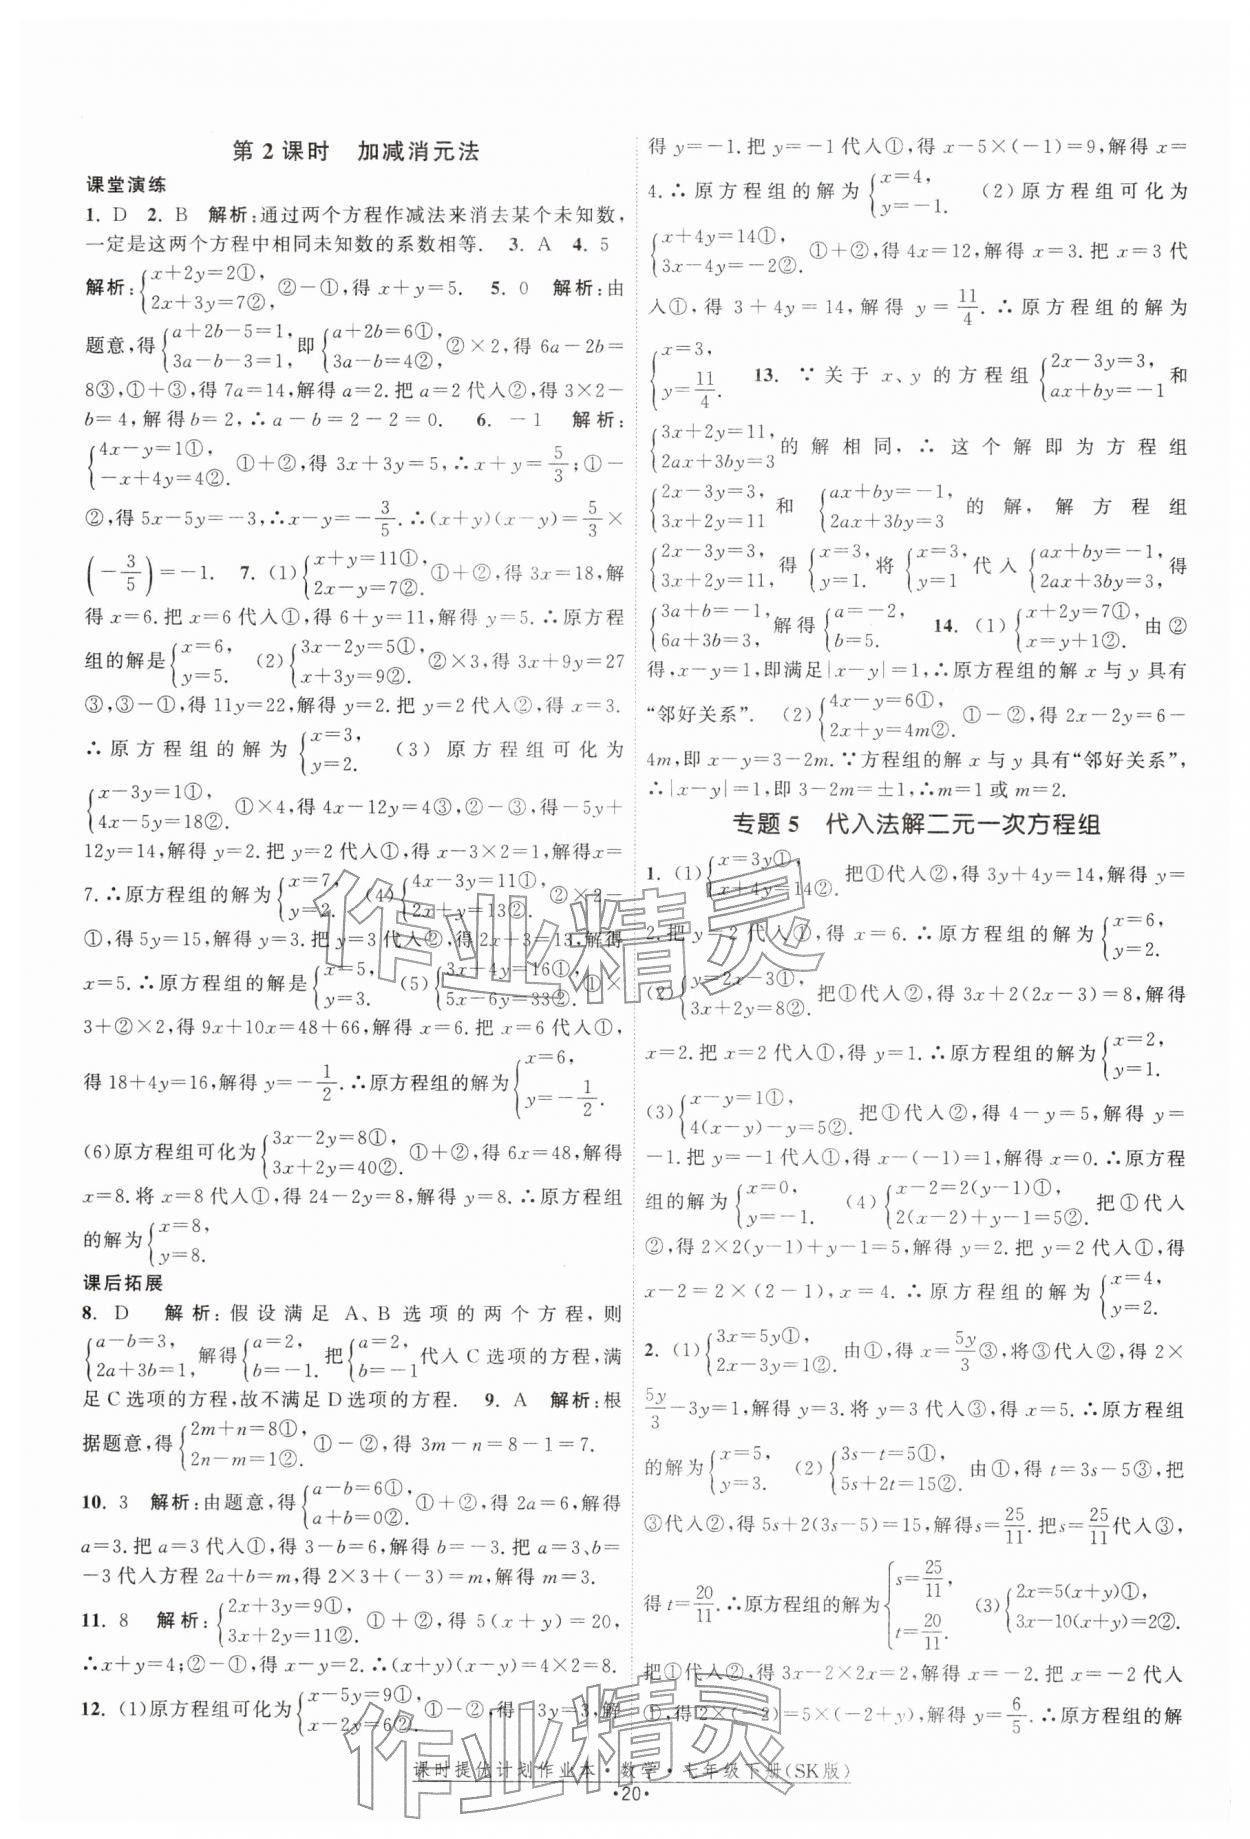 第2课时 加减消元法
课堂演练
1. D 2. B 解析:通过两个方程作减法来消去某个未知数,
一定是这两个方程中相同未知数的系数相等. 3. A 4. 5
解析:{x+2y=2①, 2x+3y=7②, ②-①,得 x+y=5. 5. 0 解析:由
题意,得{a+2b-5=1, 3a-b-3=1, 即{a+2b=6①, 3a-b=4②, ②×2,得 6a-2b=
8③,①+③,得 7a=14,解得 a=2.把 a=2 代入②,得 3×2-
b=4,解得 b=2,∴a-b=2-2=0. 6. -1 解析:
{4x-y=1①, -x+4y=4②. ①+②,得 3x+3y=5,∴x+y=5/3;①-
②,得 5x-5y=-3,∴x-y=-3/5.∴(x+y)(x-y)=5/3×
(-3/5)=-1. 7. (1){x+y=11①, 2x-y=7②. ①+②,得 3x=18,解
得 x=6.把 x=6 代入①,得 6+y=11,解得 y=5.∴原方程
组的解是{x=6, y=5. (2){3x-2y=5①, x+3y=9②. ②×3,得 3x+9y=27
③,③-①,得 11y=22,解得 y=2.把 y=2 代入②,得 x=3.
∴原方程组的解为{x=3, y=2. (3)原方程组可化为
{x-3y=1①, 4x-5y=18②. ①×4,得 4x-12y=4③,②-③,得-5y+
12y=14,解得 y=2.把 y=2 代入①,得 x-3×2=1,解得x=
7.∴原方程组的解为{x=7, y=2. (4){4x-3y=11①, 2x+y=13②. ②×2-
①,得 5y=15,解得 y=3.把 y=3 代入②,得 2x+3=13,解得
x=5.∴原方程组的解是{x=5, y=3. (5){3x+4y=16①, 5x-6y=33②. ①×
3+②×2,得 9x+10x=48+66,解得 x=6.把 x=6 代入①,
得 18+4y=16,解得 y=-1/2.∴原方程组的解为{x=6, y=-1/2.
(6)原方程组可化为{3x-2y=8①, 3x+2y=40②. ①+②,得 6x=48,解得
x=8.将 x=8 代入①,得 24-2y=8,解得 y=8.∴原方程组
的解为{x=8, y=8.
课后拓展
8. D 解析:假设满足 A、B 选项的两个方程,则
{a-b=3, 2a+3b=1, 解得{a=2, b=-1. 把{a=2, b=-1 代入 C 选项的方程,满
足 C 选项的方程,故不满足 D 选项的方程. 9. A 解析:根
据题意,得{2m+n=8①, 2n-m=1②. ①-②,得 3m-n=8-1=7.
10. 3 解析:由题意,得{a-b=6①, a+b=0②. ①+②,得 2a=6,解得
a=3.把 a=3 代入①,得 3-b=6,解得 b=-3.把 a=3、b=
-3 代入方程 2a+b=m,得 2×3+(-3)=m,解得 m=3.
11. 8 解析:{2x+3y=9①, 3x+2y=11②. ①+②,得 5(x+y)=20,
∴x+y=4;②-①,得 x-y=2.∴(x+y)(x-y)=4×2=8.
12. (1)原方程组可化为{x-5y=9①, x-2y=6②. ①-②,得-3y=3,解
得 y=-1.把 y=-1 代入①,得 x-5×(-1)=9,解得 x=
4.∴原方程组的解为{x=4, y=-1. (2)原方程组可化为
{x+4y=14①, 3x-4y=-2②. ①+②,得 4x=12,解得 x=3.把 x=3 代
入①,得 3+4y=14,解得 y=11/4.∴原方程组的解为
{x=3, y=11/4. 13. ∵关于 x、y 的方程组{2x-3y=3, ax+by=-1 和
{3x+2y=11, 2ax+3by=3 的解相同,∴这个解即为方程组
{2x-3y=3, 3x+2y=11 和 {ax+by=-1, 2ax+3by=3 的解,解方程组
{2x-3y=3, 3x+2y=11, 得{x=3, y=1. 将{x=3, y=1 代入{ax+by=-1, 2ax+3by=3, 得
{3a+b=-1, 6a+3b=3, 解得{a=-2, b=5. 14. (1){x+2y=7①, x=y+1②. 由②
得,x-y=1,即满足|x-y|=1,∴原方程组的解 x 与 y 具有
“邻好关系”. (2){4x-y=6①, 2x+y=4m②. ①-②,得 2x-2y=6-
4m,即 x-y=3-2m.∵方程组的解 x 与 y 具有“邻好关系”,
∴|x-y|=1,即 3-2m=±1,∴m=1 或 m=2.
专题5 代入法解二元一次方程组
1. (1){x=3y①, x+4y=14②. 把①代入②,得 3y+4y=14,解得 y=
2.把 y=2 代入①,得 x=6.∴原方程组的解为{x=6, y=2.
(2){y=2x-3①, 3x+2y=8②. 把①代入②,得 3x+2(2x-3)=8,解得
x=2.把 x=2 代入①,得 y=1.∴原方程组的解为{x=2, y=1.
(3){x-y=1①, 4(x-y)-y=5②. 把①代入②,得 4-y=5,解得 y=
-1.把 y=-1 代入①,得 x-(-1)=1,解得 x=0.∴原方程
组的解为{x=0, y=-1. (4){x-2=2(y-1)①, 2(x-2)+y-1=5②. 把①代入
②,得 2×2(y-1)+y-1=5,解得 y=2.把 y=2 代入①,得
x-2=2×(2-1),x=4.∴原方程组的解为{x=4, y=2.
2. (1){3x=5y①, 2x-3y=1②. 由①,得 x=5y/3③,将③代入②,得 2×
5y/3-3y=1,解得 y=3.将 y=3 代入③,得 x=5.∴原方程组
的解为{x=5, y=3. (2){3s-t=5①, 5s+2t=15②. 由①,得 t=3s-5③,把
③代入②,得 5s+2(3s-5)=15,解得s=25/11.把s=25/11代入③,
得 t=20/11.∴原方程组的解为{s=25/11, t=20/11. (3){2x=5(x+y)①, 3x-10(x+y)=2②.
把①代入②,得 3x-2×2x=2,解得 x=-2.把 x=-2 代入
①,得 2×(-2)=5×(-2+y),解得 y=6/5.∴原方程组的解
课时提优计划作业本·数学·七年级下册(SK版)
·20·
作业精灵
作业精灵